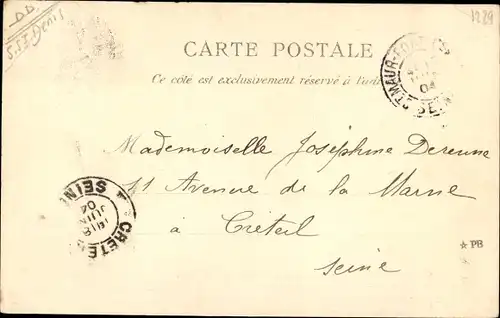 1229
CARTE POSTALE
Ce côté est exclusivement réservé à
ST MAUR
04
SEINE
Mademoiselle Joséphine Derenne
41 Avenue de la Marne
à Créteil
Seine
CRETEIL
18
JUIN
04
SEINE
★ PB